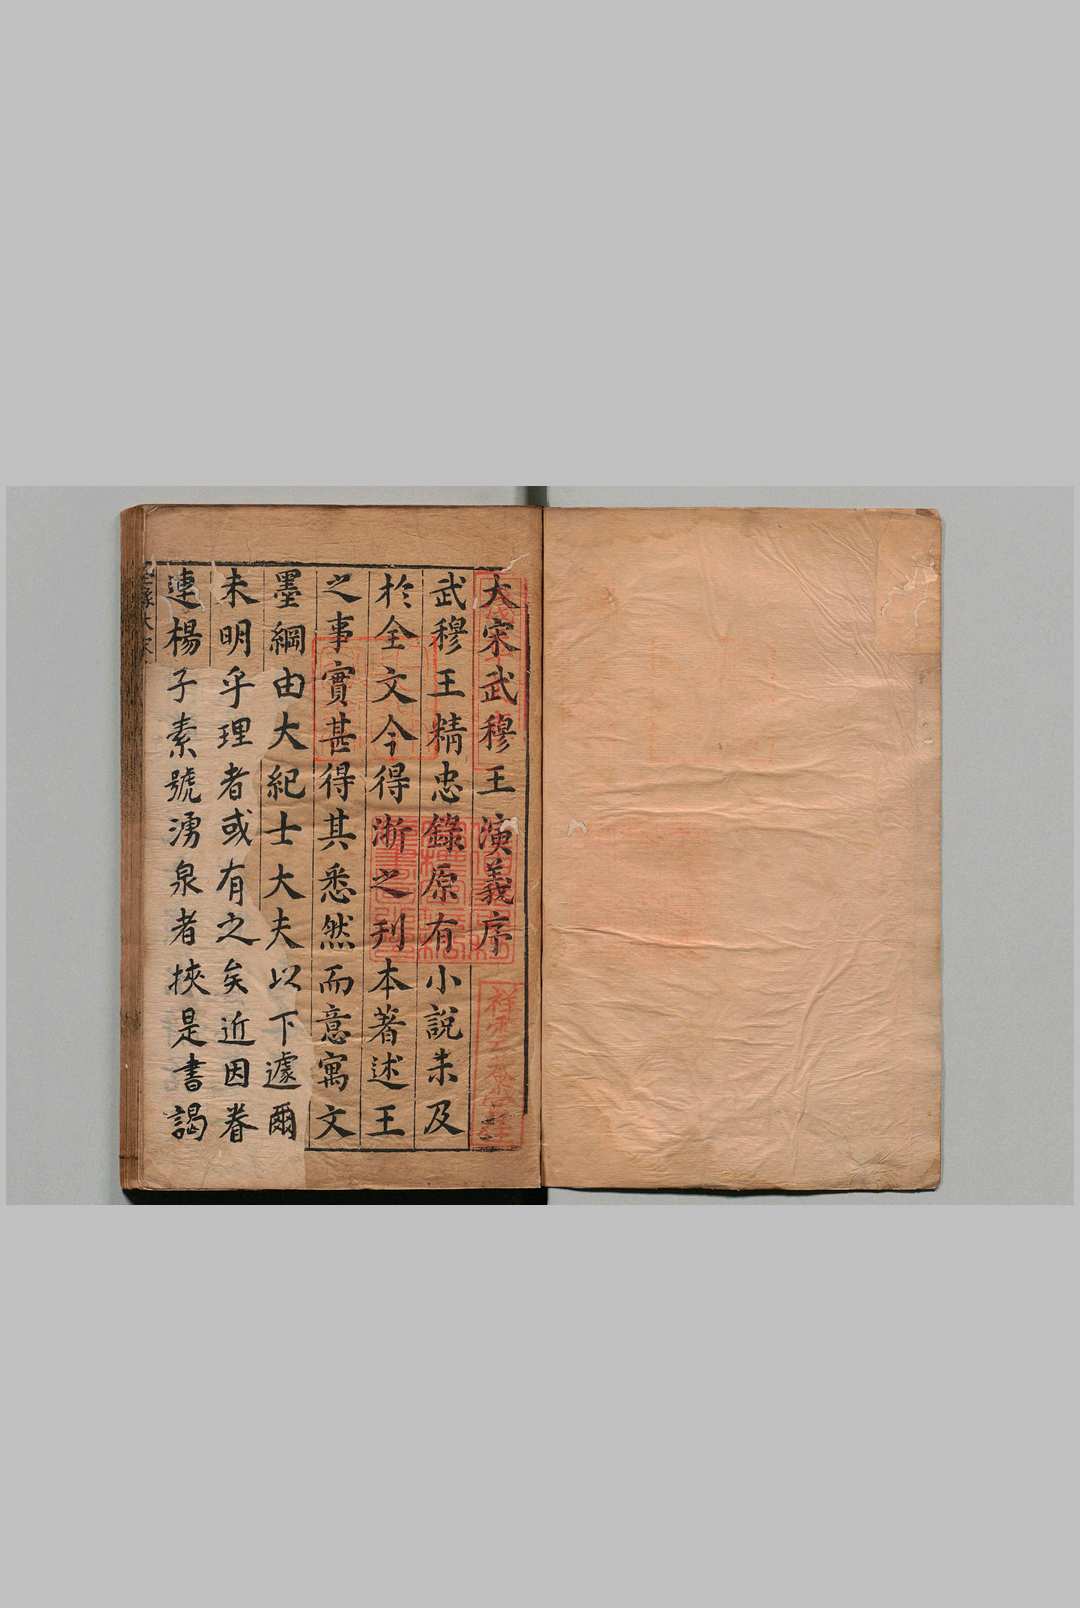 大宋武穆王演義序
武穆王精忠錄原有小說未及
於全文今得浙之刋本著述王
之事實甚得其悉然而意寓文
墨綱由大紀士大夫以下遽爾
未明乎理者或有之矣近因眷
連楊子素號湧泉者挾是書謁